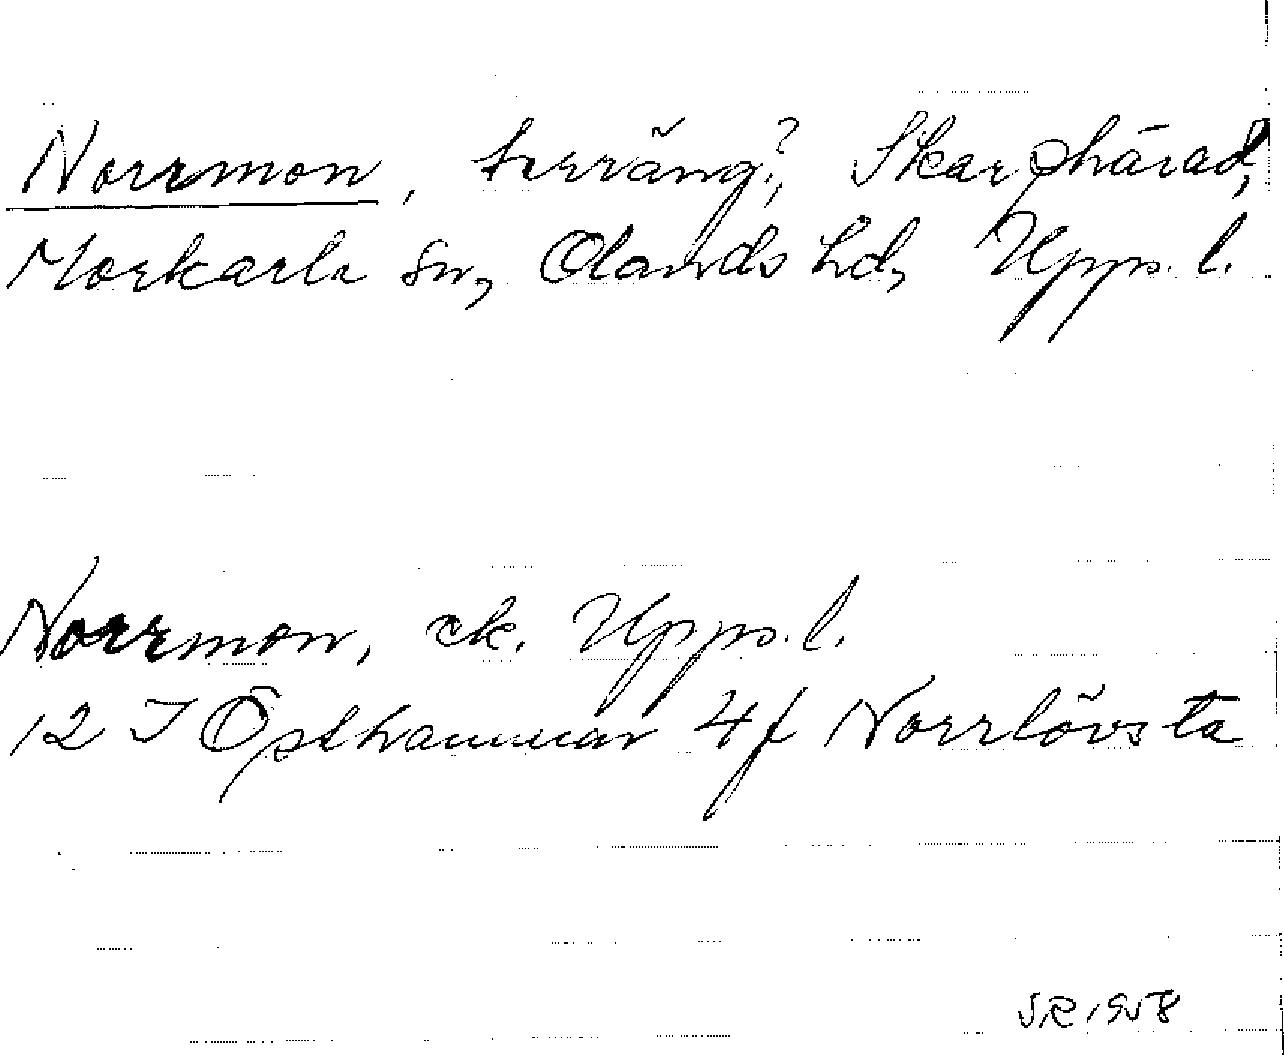 Norrmon, terräng?, Skarphärad,
Morkarla sn, Olands hd, Upps. l.
Norrmon, ek. Upps. l.
12 I Östhammar 4f Norrlövsta
SR 1958